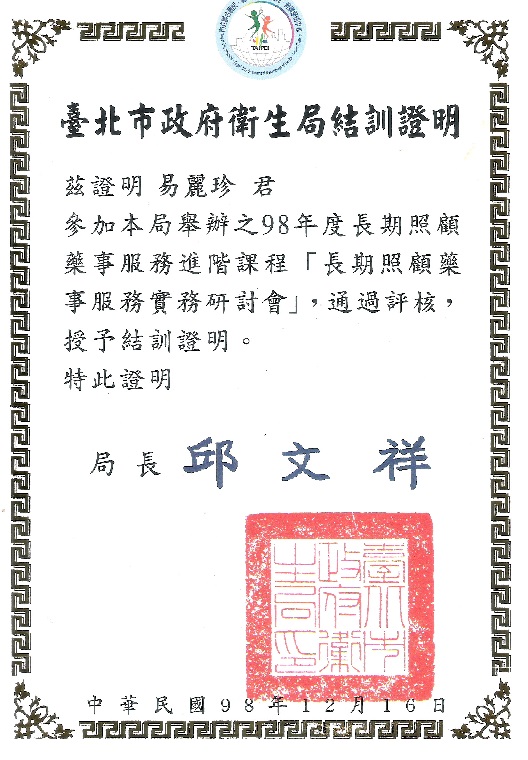 TAIPEI
臺北市政府衛生局結訓證明
茲證明 易麗珍 君
參加本局舉辦之98年度長期照顧
藥事服務進階課程「長期照顧藥
事服務實務研討會」，通過評核，
授予結訓證明。
特此證明
局長 邱文祥
臺北市
政府衛
生局印
中華民國98年12月16日